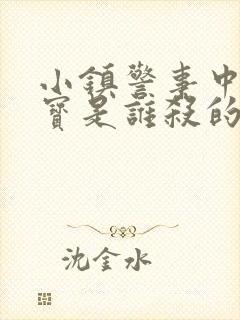 小鎮警事中
寶是誰殺的
沈金水